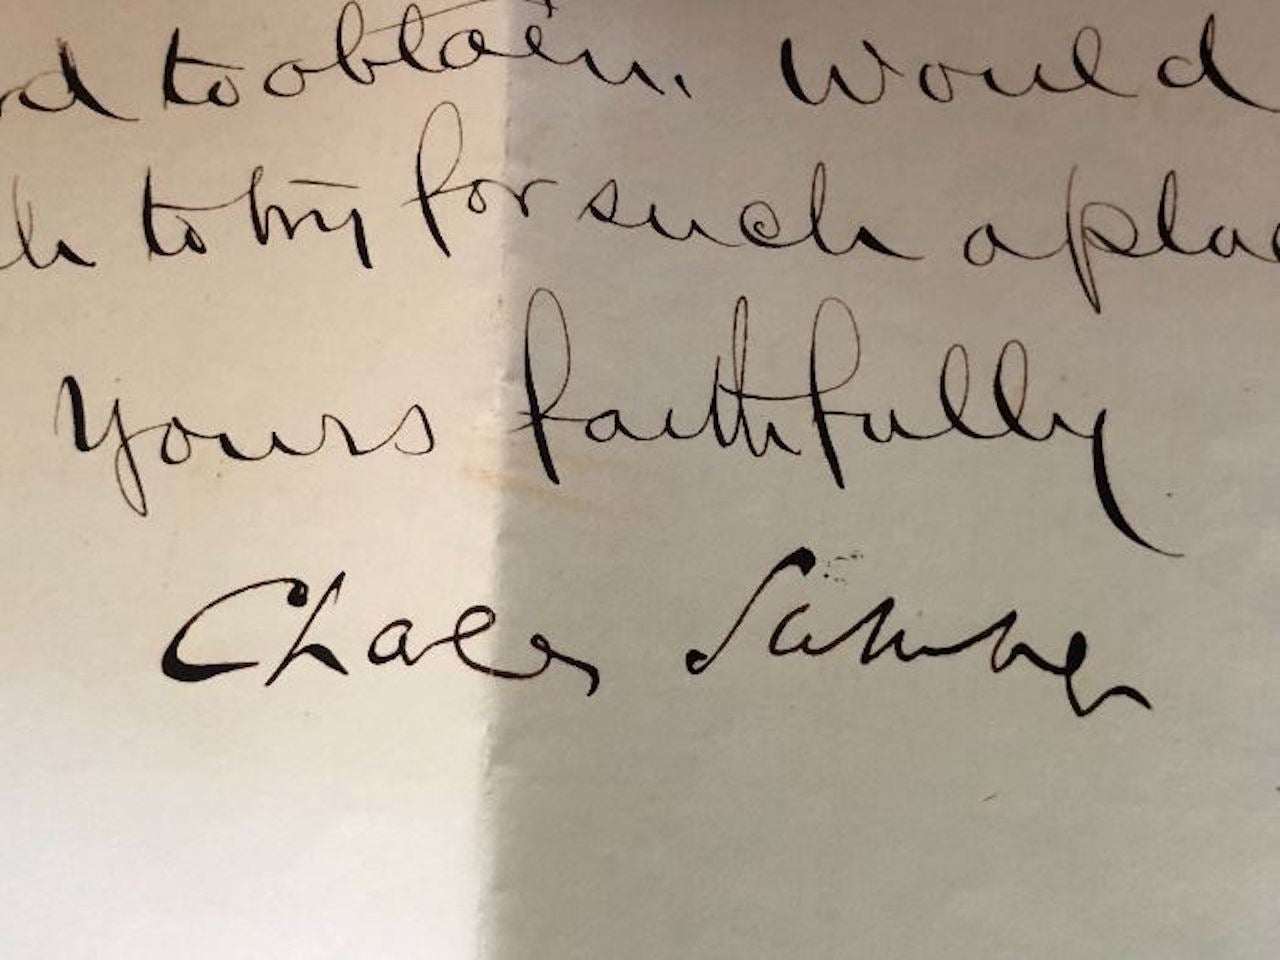 to obtain. Would
to try for such a plac
Yours faithfully
Charles